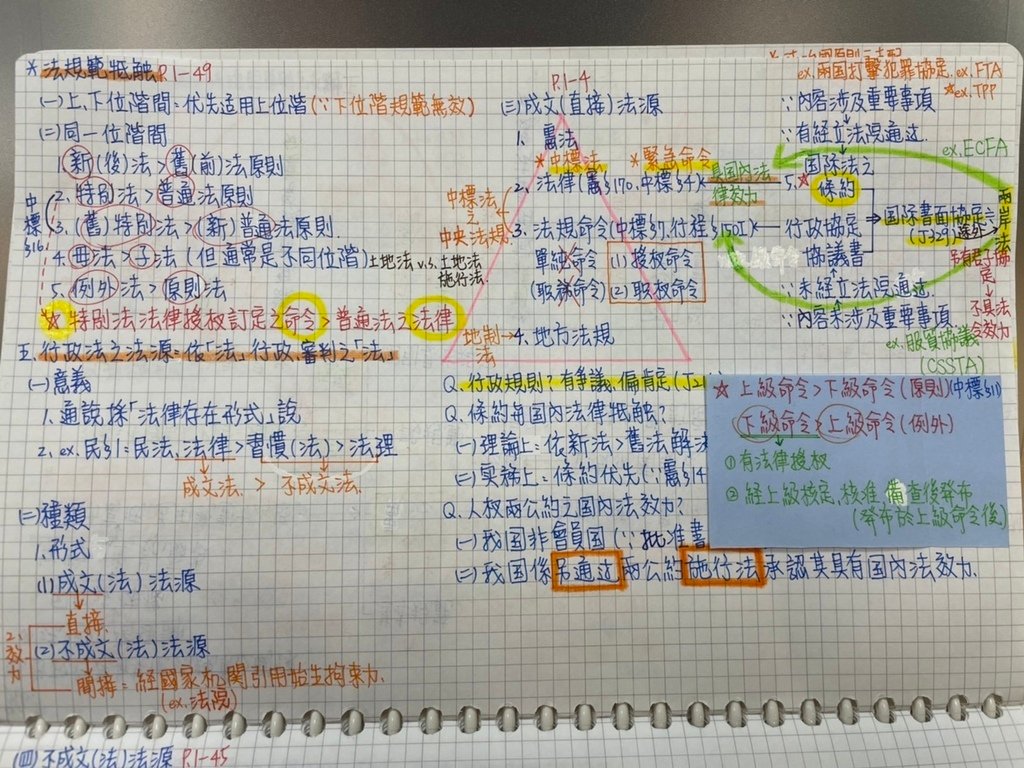 *法規範牴觸 P.1-49
(一)上、下位階間:优先适用上位階(∵下位階規範無效)
(二)同一位階間
1.新(後)法>舊(前)法原則
2.特別法>普通法原則
3.(舊)特別法>(新)普通法原則.
4.母法>子法(但通常是不同位階)土地法v.s.土地法施行法.
5.例外法>原則法
中標§16
☆特別法法律授权訂定之命令>普通法之法律
五.行政法之法源:依「法」行政、審判之「法」
(一)意義
1.通說採「法律存在形式」說
2.ex.民§1:民法,法律>習慣(法)>法理
成文法. > 不成文法.
(二)種類
1.形式
(1)成文(法)法源
直接.
(2)不成文(法)法源
間接:經國家机関引用始生拘束力.
(ex.法院)
2.效力
(四)不成文(法)法源 P.1-45
P.1-4
(三)成文(直接)法源
1.憲法
*中標法 *緊急命令
2.法律(憲§170,中標§4)
具国內法律效力
中標法之中央法規
3.法規命令(中標§7,行程§150I)
單純命令 (1)授权命令
(职務命令) (2)职权命令
地制法
4.地方法規
ex.兩国打擊犯罪協定.ex.FTA
☆ex.TPP
∵內容涉及重要事項
∵有經立法院通过.
ex.ECFA
5.☆国际法之條約
行政協定
協議書
国际書面協定
(J329)
∵未經立法院通过.
∵內容未涉及重要事項
ex.服貿協議
(CSSTA)
兩岸法
不具法令效力
Q.行政規則?有爭議,偏肯定
Q.條約與国內法律牴觸?
(一)理論上:依新法>舊法解決
(二)実務上:條約优先(∵憲§14
Q.人权兩公約之国內法效力?
(一)我国非會員国(∵批准書
(二)我国係另通过兩公約施行法承認其具有国內法效力.
☆上級命令>下級命令(原則)(中標§11)
下級命令>上級命令(例外)
①有法律授权
②經上級核定、核准、備查後發布
(發布於上級命令後)